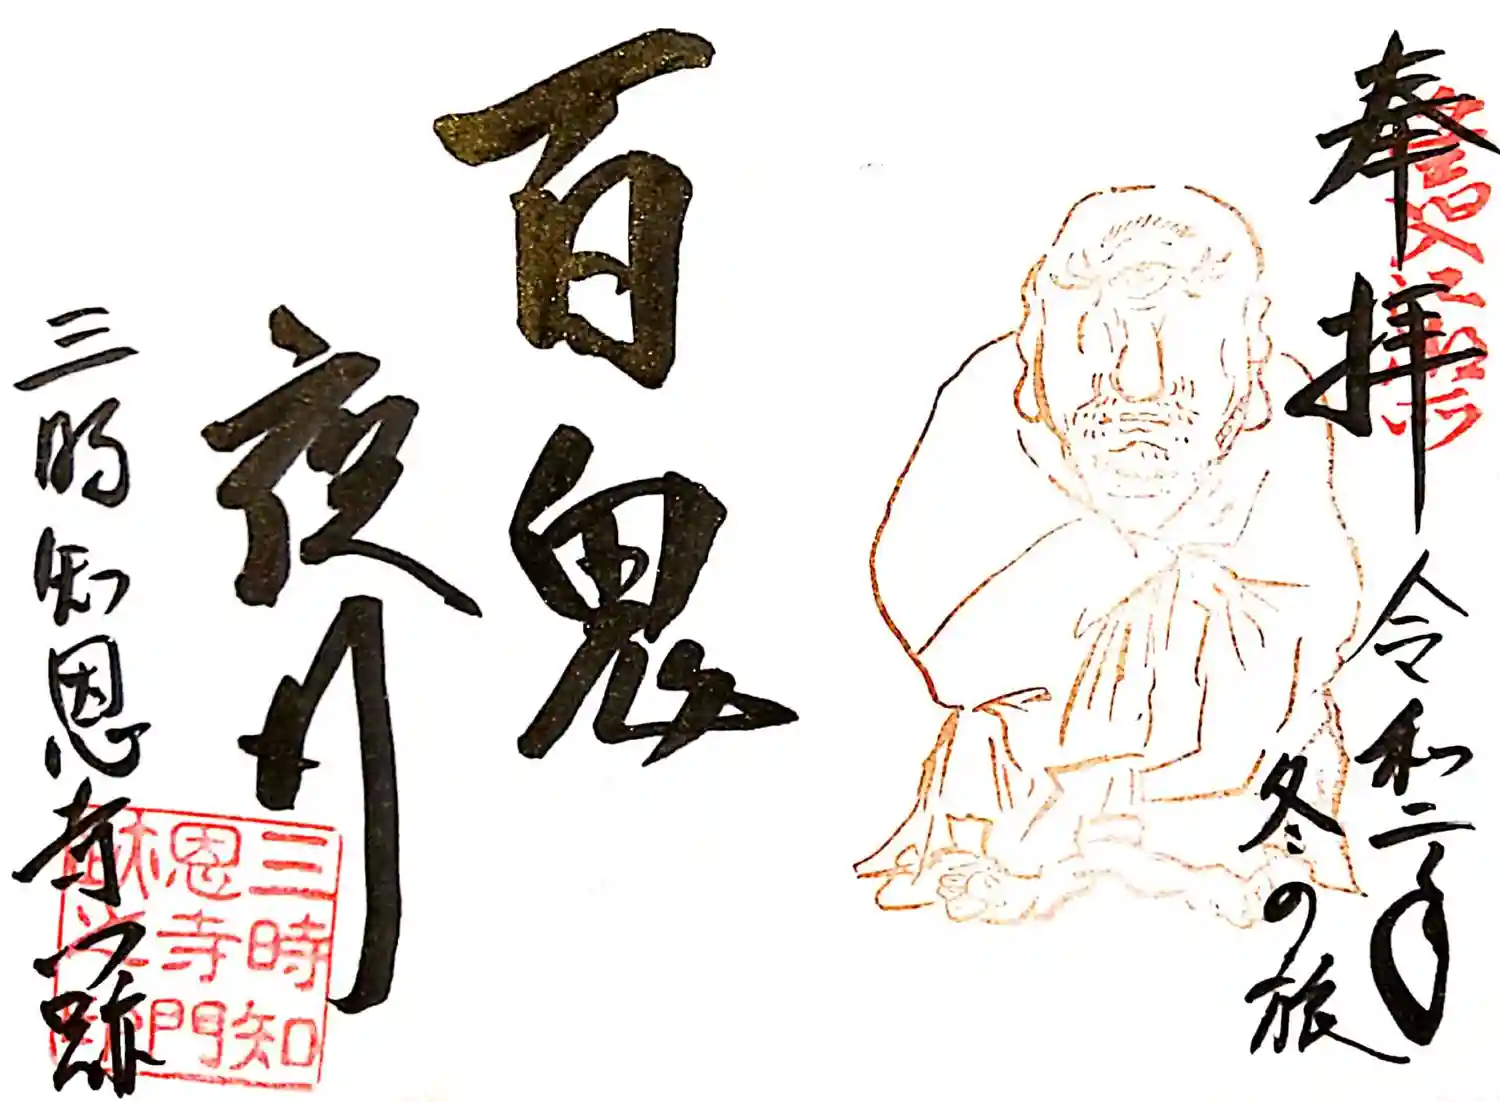 奉拝
入江御所
令和二年
冬の旅
百鬼
夜行
三時知恩寺門跡
三時知
恩寺門
跡之印